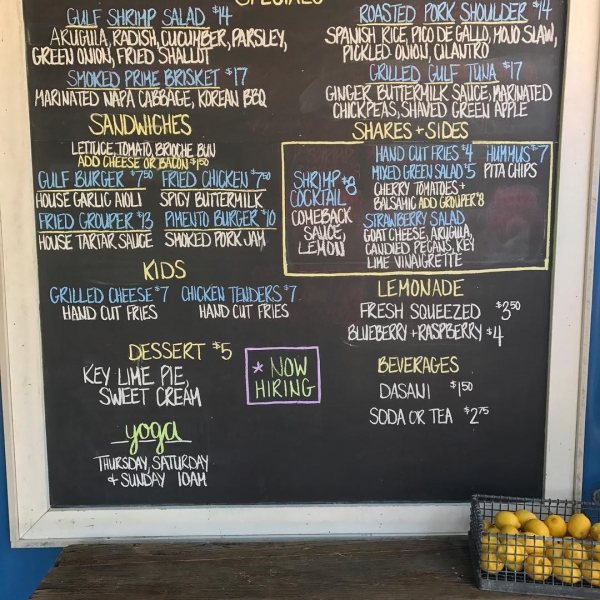 SPECIALS
GULF SHRIMP SALAD $14
ARUGULA, RADISH, CUCUMBER, PARSLEY,
GREEN ONION, FRIED SHALLOT
SMOKED PRIME BRISKET $17
MARINATED NAPA CABBAGE, KOREAN BBQ
ROASTED PORK SHOULDER $14
SPANISH RICE, PICO DE GALLO, MOJO SLAW,
PICKLED ONION, CILANTRO
GRILLED GULF TUNA $17
GINGER BUTTERMILK SAUCE, MARINATED
CHICKPEAS, SHAVED GREEN APPLE
SANDWICHES
LETTUCE, TOMATO, BRIOCHE BUN
ADD CHEESE OR BACON $1.50
GULF BURGER $7.50
HOUSE GARLIC AIOLI
FRIED CHICKEN $7.50
SPICY BUTTERMILK
FRIED GROUPER $13
HOUSE TARTAR SAUCE
PIMENTO BURGER $10
SMOKED PORK JAM
SHARES + SIDES
SHRIMP $8
COCKTAIL
COMEBACK
SAUCE,
LEMON
HAND CUT FRIES $4
MIXED GREEN SALAD $5
CHERRY TOMATOES +
BALSAMIC ADD GROUPER $8
STRAWBERRY SALAD
GOAT CHEESE, ARUGULA,
CANDIED PECANS, KEY
LIME VINAIGRETTE
HUMMUS $7
PITA CHIPS
KIDS
GRILLED CHEESE $7
HAND CUT FRIES
CHICKEN TENDERS $7
HAND CUT FRIES
LEMONADE
FRESH SQUEEZED $3.50
BLUEBERRY + RASPBERRY $4
DESSERT $5
KEY LIME PIE,
SWEET CREAM
* NOW
HIRING
BEVERAGES
DASANI $1.50
SODA OR TEA $2.75
yoga
THURSDAY, SATURDAY
+ SUNDAY 10AM